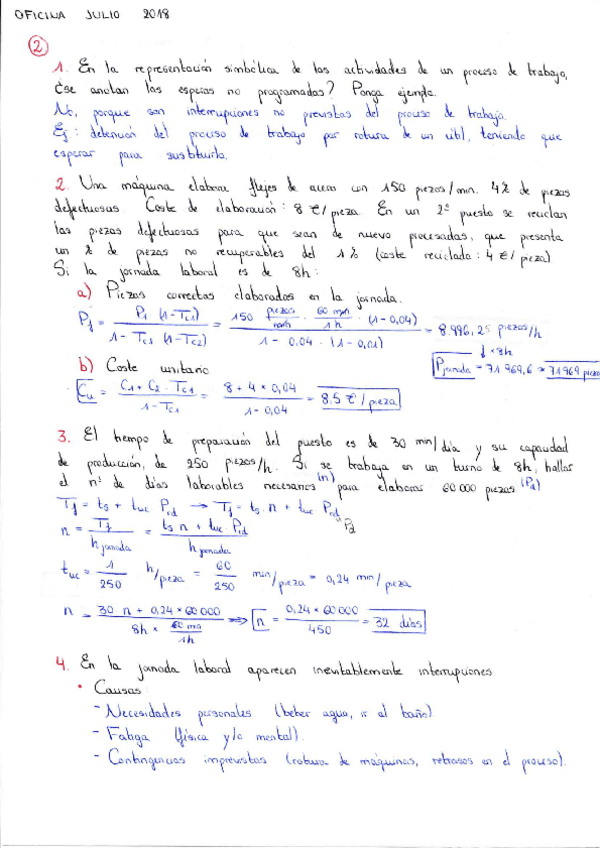 OFICINA JULIO 2018
②
1. En la representación simbólica de las actividades de un proceso de trabajo,
¿se anotan las esperas no programadas? Ponga ejemplo.
No, porque son interrupciones no previstas del proceso de trabajo.
Ej: detención del proceso de trabajo por rotura de un útil, teniendo que
esperar para sustituirlo.
2. Una máquina elabora flejes de acero con 150 piezas/min. 4% de piezas
defectuosas Coste de elaboración: 8 €/pieza. En un 2º puesto se reciclan
las piezas defectuosas para que sean de nuevo procesadas, que presenta
un % de piezas no recuperables del 1% (coste reciclado: 4 €/pieza)
Si la jornada laboral es de 8h:
a) Piezas correctas elaboradas en la jornada.
Pj = P1 (1-Tc1) / 1-Tc1 (1-Tc2) = 150 piezas/min · 60 min/1h · (1-0,04) / 1-0,04·(1-0,01) = 8.996,25 piezas/h
↓ ×8h
Pjornada = 71969,6 = 71969 piezas
b) Coste unitario
Cu = C1 + C2 · Tc1 / 1-Tc1 = 8 + 4 × 0,04 / 1-0,04 = 8.5 €/pieza
3. El tiempo de preparación del puesto es de 30 min/día y su capacidad
de producción, de 250 piezas/h. Si se trabaja en un turno de 8h, hallar
el nº de días laborables necesarios (n) para elaborar 60000 piezas (Pd)
Tf = ts + tuc Pd → Tf = ts·n + tuc Pd
n = Tf / hjornada = ts n + tuc·Pd / hjornada
tuc = 1/250 h/pieza = 60/250 min/pieza = 0,24 min/pieza
n = 30 n + 0,24 × 60000 / 8h × 60 min/1h ⇒ n = 0,24 × 60000 / 450 = 32 días
4. En la jornada laboral aparecen inevitablemente interrupciones
• Causas:
- Necesidades personales (beber agua, ir al baño)
- Fatiga (física y/o mental).
- Contingencias imprevistas (rotura de máquinas, retrasos en el proceso).